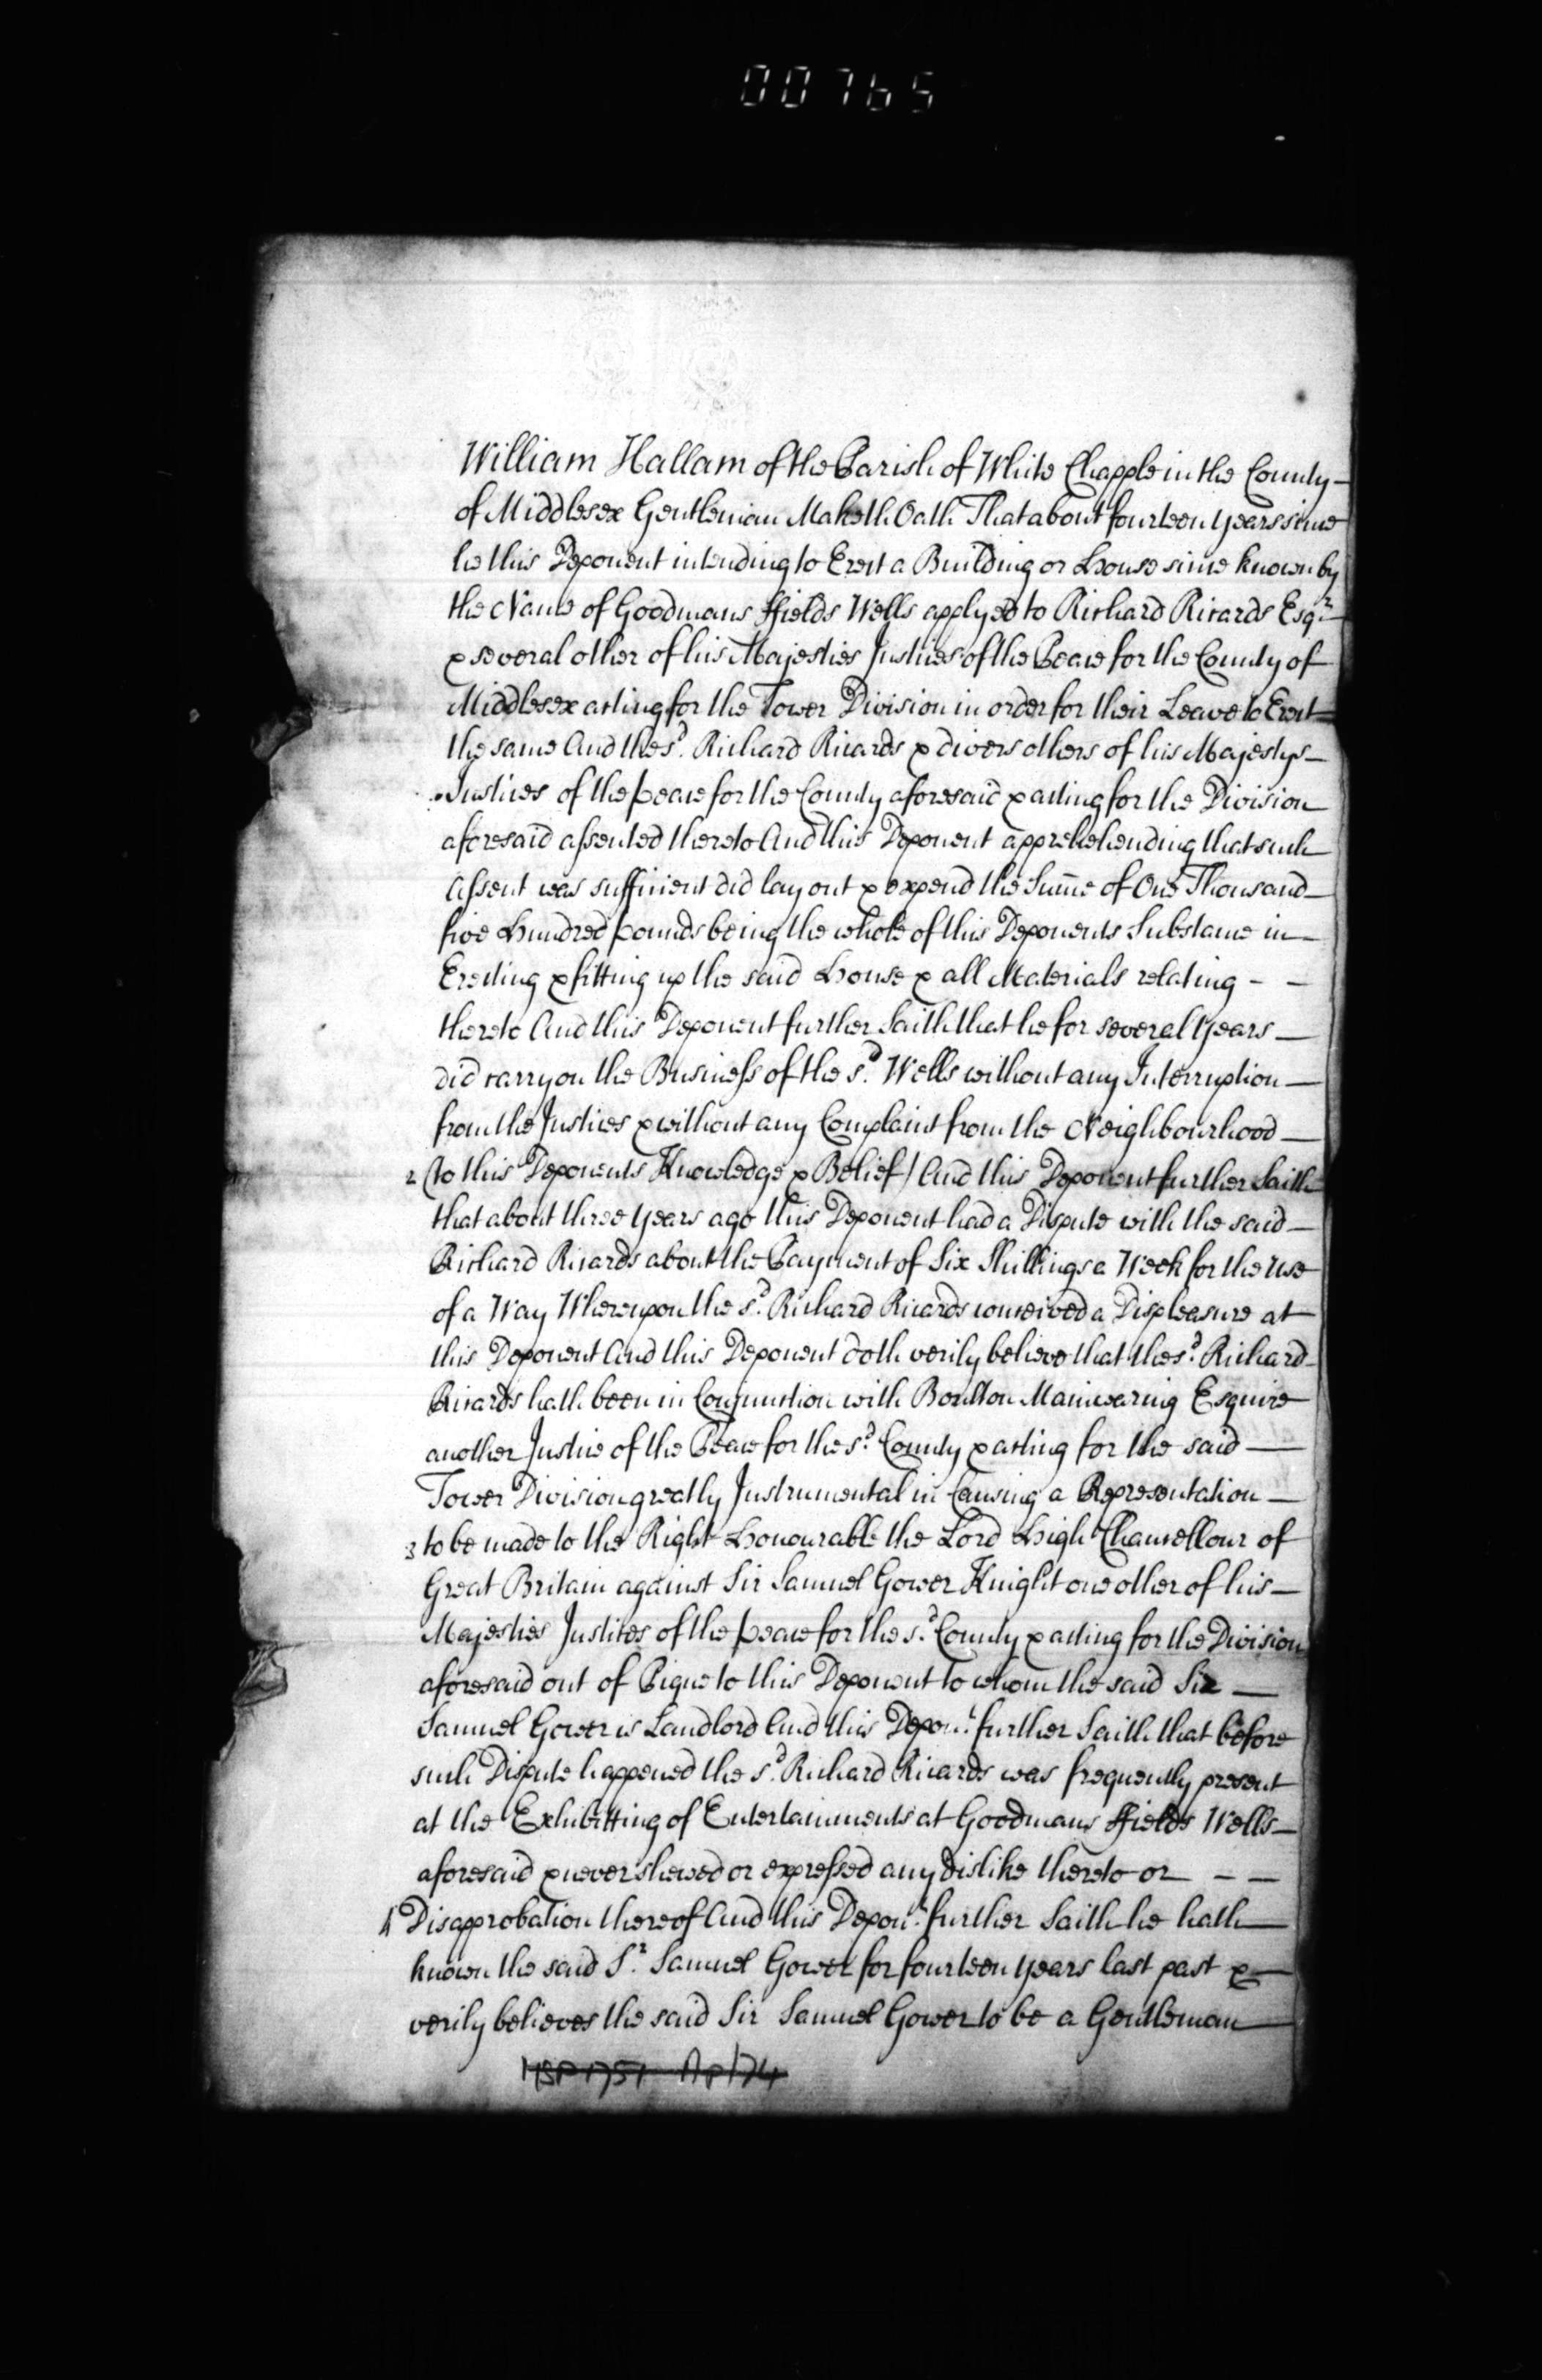 00765
William Hallam of the Parish of White Chapple in the County
of Middlesex Gentleman Maketh Oath That about fourteen years since
he this Deponent intending to Erect a Building or House since known by
the Name of Goodmans ffields Wells applyed to Richard Ricards Esqr.
& several other of his Majesties Justices of the Peace for the County of
Middlesex acting for the Tower Division in order for their Leave to Erect
the same And the sd. Richard Ricards & divers others of his Majestys
Justices of the peace for the County aforesaid & acting for the Division
aforesaid assented thereto And this Deponent apprehehending that such
Assent was sufficient did lay out & expend the Sum̄e of One Thousand
five Hundred pounds being the whole of this Deponents Substance in
Erecting & fitting up the said House & all Materials relating - -
thereto And this Deponent further Saith that he for several years
did carry on the Business of the sd. Wells without any Interruption
from the Justices & without any Complaint from the Neighbourhood
2 (to this Deponents Knowledge & Belief) And this Deponent further Saith
that about three years ago this Deponent had a Dispute with the said
Richard Ricards about the Payment of Six Shillings a Week for the use
of a Way Whereupon the sd. Richard Ricards conceived a Displeasure at
this Deponent And this Deponent doth verily believe that the sd. Richard
Ricards hath been in Conjunction with Boulton Mainwaring Esquire
another Justice of the Peace for the sd. County & acting for the said
Tower Division greatly Instrumental in Causing a Representation
3 to be made to the Right Honourable the Lord High Chancellour of
Great Britain against Sir Samuel Gower Knight one other of his
Majesties Justices of the peace for the sd. County & acting for the Division
aforesaid out of Pique to this Deponent to whom the said Sir
Samuel Gower is Landlord And this Depont. further Saith that before
such Dispute happened the sd. Richard Ricards was frequently present
at the Exhibitting of Entertainments at Goodmans ffields Wells
aforesaid & never shewed or expressed any dislike thereto or - -
4 Disapprobation thereof And this Depont. further Saith he hath
known the said Sr. Samuel Gower for fourteen years last past &
verily believes the said Sir Samuel Gower to be a Gentleman